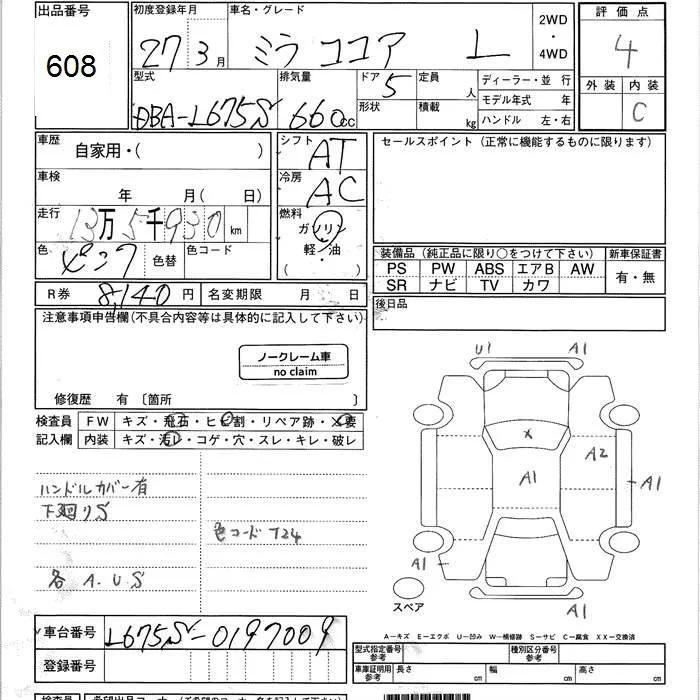 出品番号
608
初度登録年月
27 3月
車名・グレード
ミラ ココア L
2WD
・
4WD
評価点
4
外装
内装
C
型式
DBA-L675S
排気量
660cc
ドア
5
形状
定員
人
積載
kg
ディーラー・並 行
モデル年式 年
ハンドル 左・右
車歴
自家用・( )
車検
年 月( 日)
走行
13万5千930km
色
ピンク
色替
色コード
シフト
AT
冷房
AC
燃料
ガソリン
軽・油
( )
セールスポイント(正常に機能するものに限ります)
装備品(純正品に限り○をつけて下さい)
PS PW ABS エアB AW
SR ナビ TV カワ
新車保証書
有・無
R券 8,140円
名変期限 月 日
後日品
注意事項申告欄(不具合内容等は具体的に記入して下さい)
ノークレーム車
no claim
修復歴 有 〔箇所 〕
検査員
記入欄
FW キズ・飛石・ヒビ割・リペア跡・×要
内装 キズ・汚レ・コゲ・穴・スレ・キレ・破レ
ハンドルカバー有
下廻りS
色コード T24
各 A.U.S
U1 A1
X
A2
A1
A1
A1
A1
スペア
A-キズ E-エクボ U-凹み W-補修跡 S-サビ C-腐食 XX-交換済
車台番号
L675S-0197009
登録番号
型式指定番号
参考
種別区分番号
参考
車庫証明用
参考
長さ cm
幅 cm
高さ cm